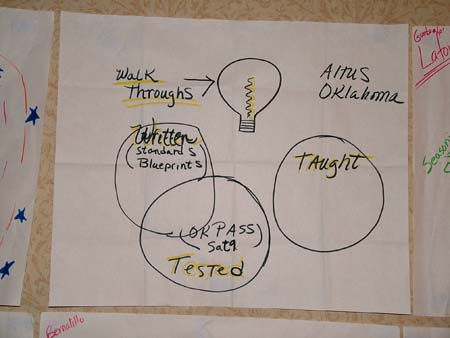 Walk
Throughs
Altus
Oklahoma
Written
Standards
Blueprints
Taught
(OKPASS)
Sat9
Tested
Bernalillo